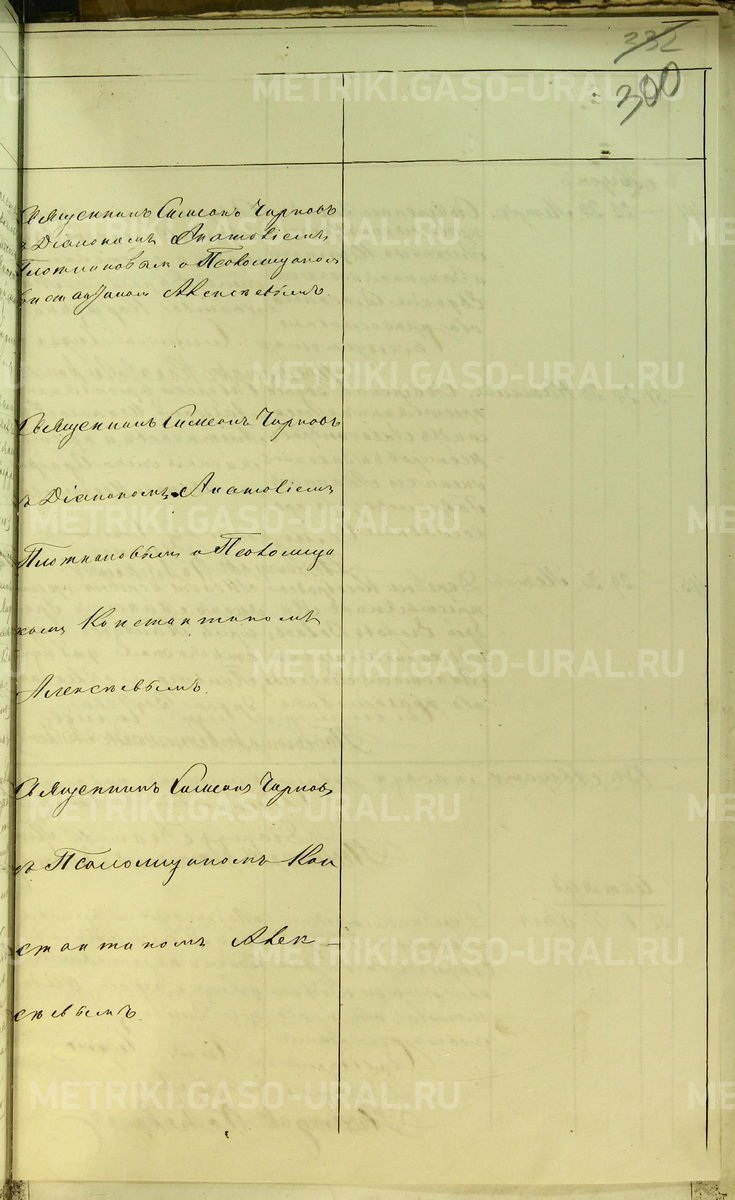 332
300
Священникъ Симеонъ Чирковъ
съ Діакономъ Анатоліемъ
Плотниковымъ и Псаломщикомъ
Константиномъ Алексѣевымъ.
Священникъ Симеонъ Чирковъ
съ Діакономъ Анатоліемъ
Плотниковымъ и Псаломщи
комъ Константиномъ
Алексѣевымъ.
Священникъ Симеонъ Чирковъ
съ Псаломщикомъ Кон
стантиномъ Алек-
сѣевымъ.
METRIKI.GASO-URAL.RU